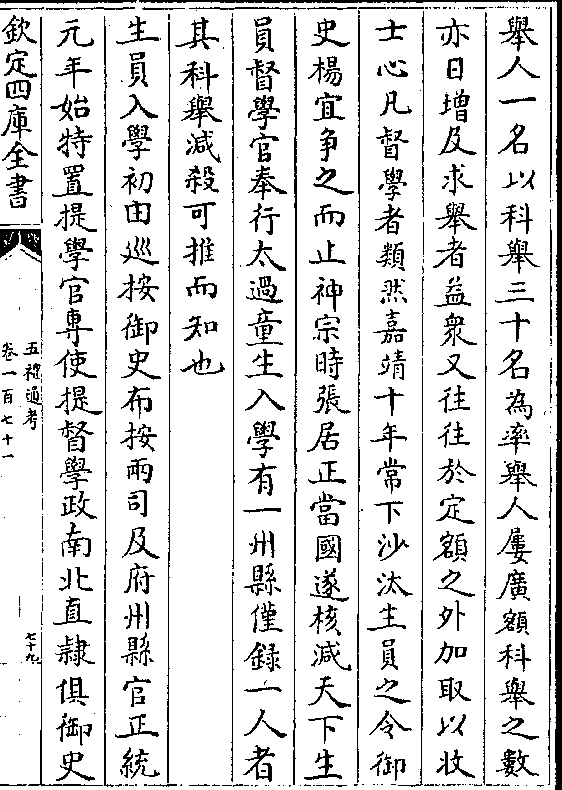 舉人一名以科舉三十名為率舉人屢廣額科舉之數
亦日增及求舉者益衆又往往於定額之外加取以收
士心凡督學者類然嘉靖十年常下沙汰生員之令御
史楊宜爭之而止神宗時張居正當國遂核減天下生
員督學官奉行太過童生入學有一州縣僅錄一人者
其科舉減殺可推而知也
生員入學初由巡按御史布按兩司及府州縣官正統
元年始特置提學官專使提督學政南北直隸俱御史
欽定四庫全書
五禮通考
卷一百七十一
七十九